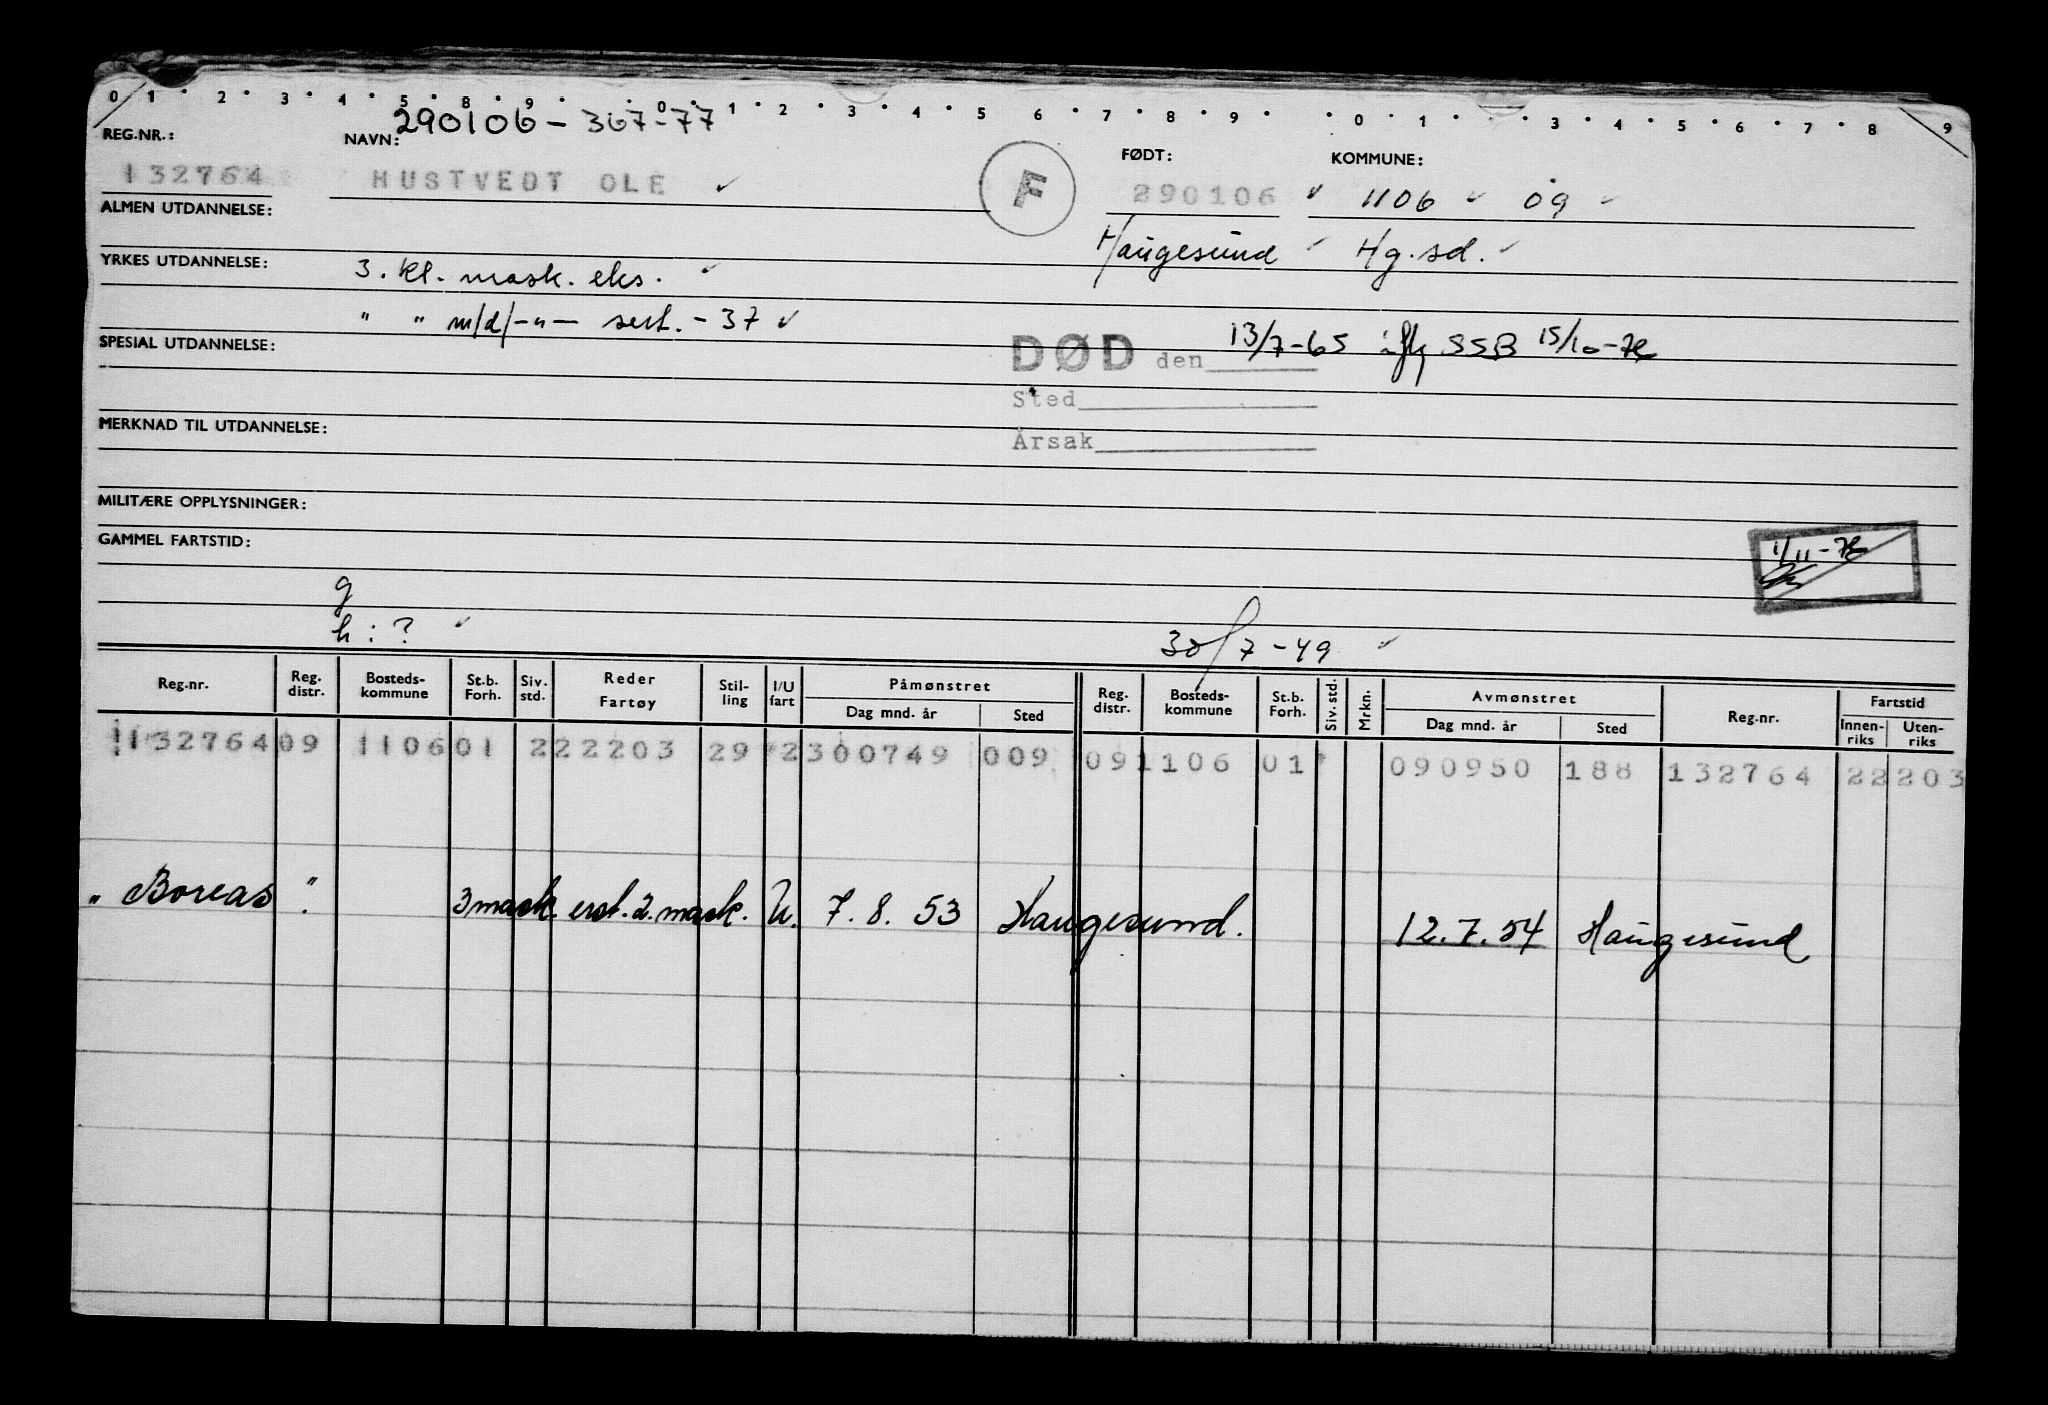 0 1 2 3 4 5 8 9 0 1 2 3 4 5 6 7 8 9 0 1 3 4 5 6 7 8 9
290106 - 367-77
REG.NR.: NAVN: FØDT: KOMMUNE:
132764 HUSTVEDT OLE F 290106 1106 09
ALMEN UTDANNELSE: Haugesund Hg.sd.
YRKES UTDANNELSE: 3. kl. mask. eks.
" " m/d/-"- sert. - 37
SPESIAL UTDANNELSE: DØD den 13/7-65 iflg SSB 15/10-72
Sted
MERKNAD TIL UTDANNELSE: Årsak
MILITÆRE OPPLYSNINGER:
GAMMEL FARTSTID: 1/11-72
g
h : ? 30/7-49
Reg.nr. Reg. distr. Bosteds-kommune St.b. Forh. Siv. std. Reder Fartøy Stil-ling I/U fart Påmønstret Dag mnd. år Sted Reg. distr. Bosteds-kommune St.b. Forh. Siv. std. Mrkn. Avmønstret Dag mnd. år Sted Reg.nr. Fartstid Innen-riks Uten-riks
132764 09 1106 01 222203 29 2 300749 009 09 1106 01 090950 188 132764 22203
"Boreas" 3 mask. erst. 2. mask. U. 7. 8. 53 Haugesund. 12. 7. 54 Haugesund